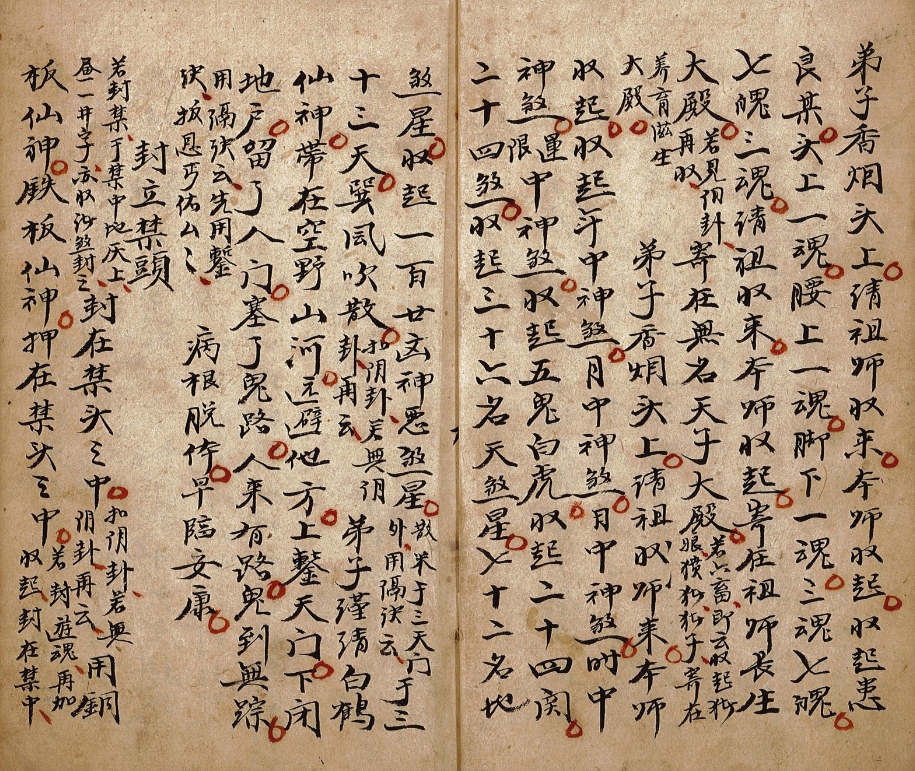 弟子香烟头上。请祖师收来。本师收起。收起患
良某头上一魂。腰上一魂。脚下一魂。三魂七魄。
七魄三魂。请祖收来。本师收起。寄在祖师长生
大殿。若見阴卦再收、寄在無名天子大殿。若六畜即云收起
养育滋生大殿。。弟子香烟头上。请祖收师来。本师
收起收起年中神煞。月中神煞。月中神煞。时中
神煞。運限中神煞。收起五鬼白虎。收起二十四関。
二十四煞。收起三十六名天煞星。七十二名地
煞星。收起一百廿凶神恶煞星。散米于三天门外、用隔訣云、于三
十三天。巽風吹散。扣阴卦、若無阴卦再云、弟子謹请白鶴
仙神。帶在空野山河。远避他方。上鑿天门。下闭
地户。留了人门。塞了鬼路。人来有路。鬼到無踪。
用隔訣云、先用鑿訣、扳恩丐佑厶厶、病根脱体。早賠安康。
封立禁頭
若封禁、于禁中地灰上、畫一井字、封在禁头之中。扣阴卦、若無阴卦再云、用銅
板仙神。鉄板仙神。押在禁头之中。若封遊魂、再加收起封在禁中、